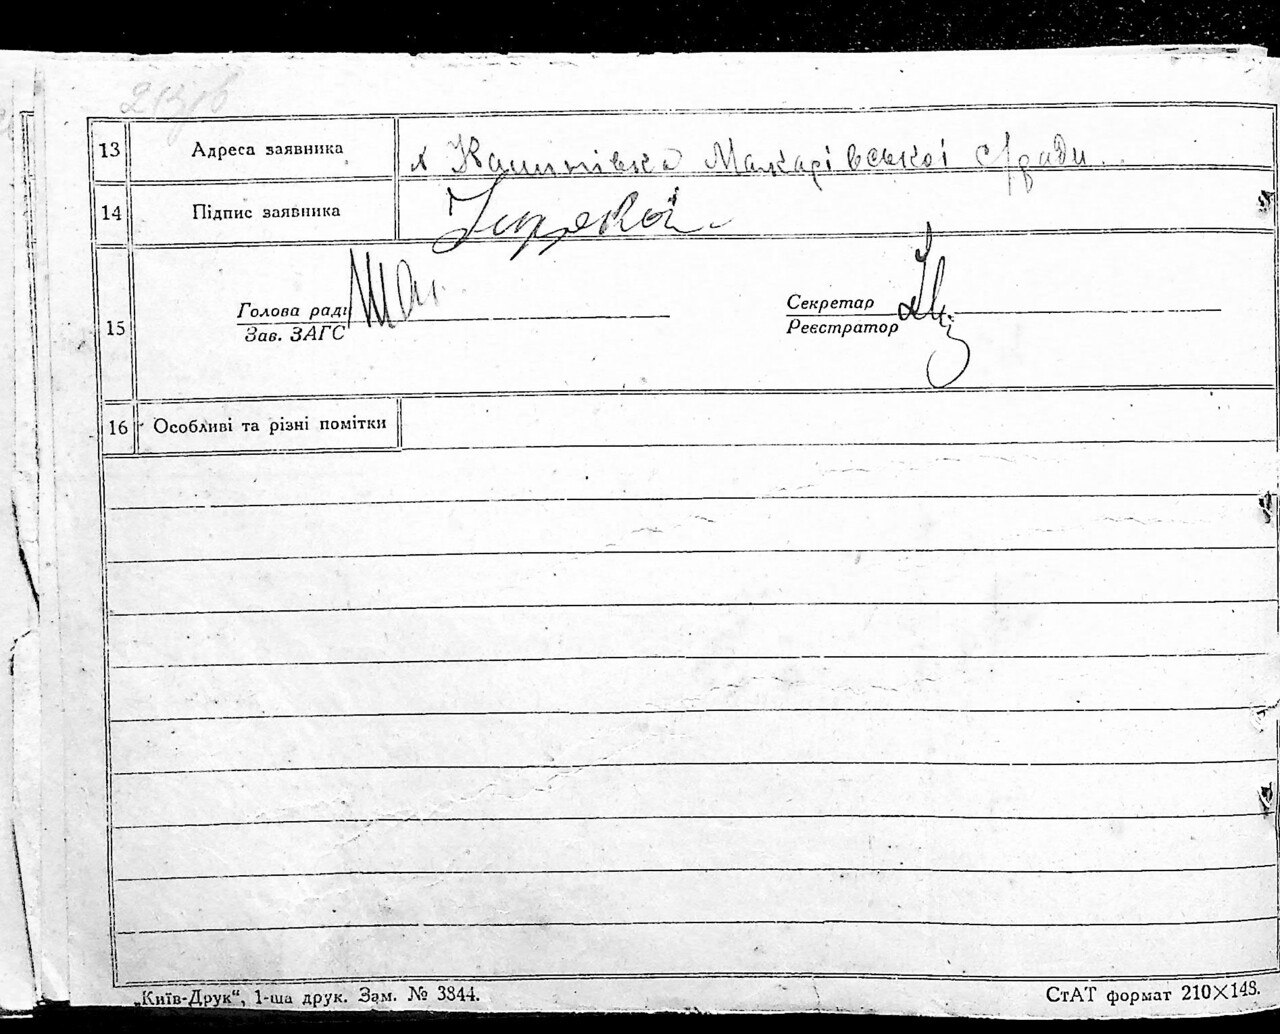 13 Адреса заявника х Калинівка Макарівської с/ради.
14 Підпис заявника
15
Голова ради Секретар
Зав. ЗАГС Реєстратор
16 Особливі та різні помітки
„Київ-Друк“, 1-ша друк. Зам. № 3344. СтАТ формат 210×148.